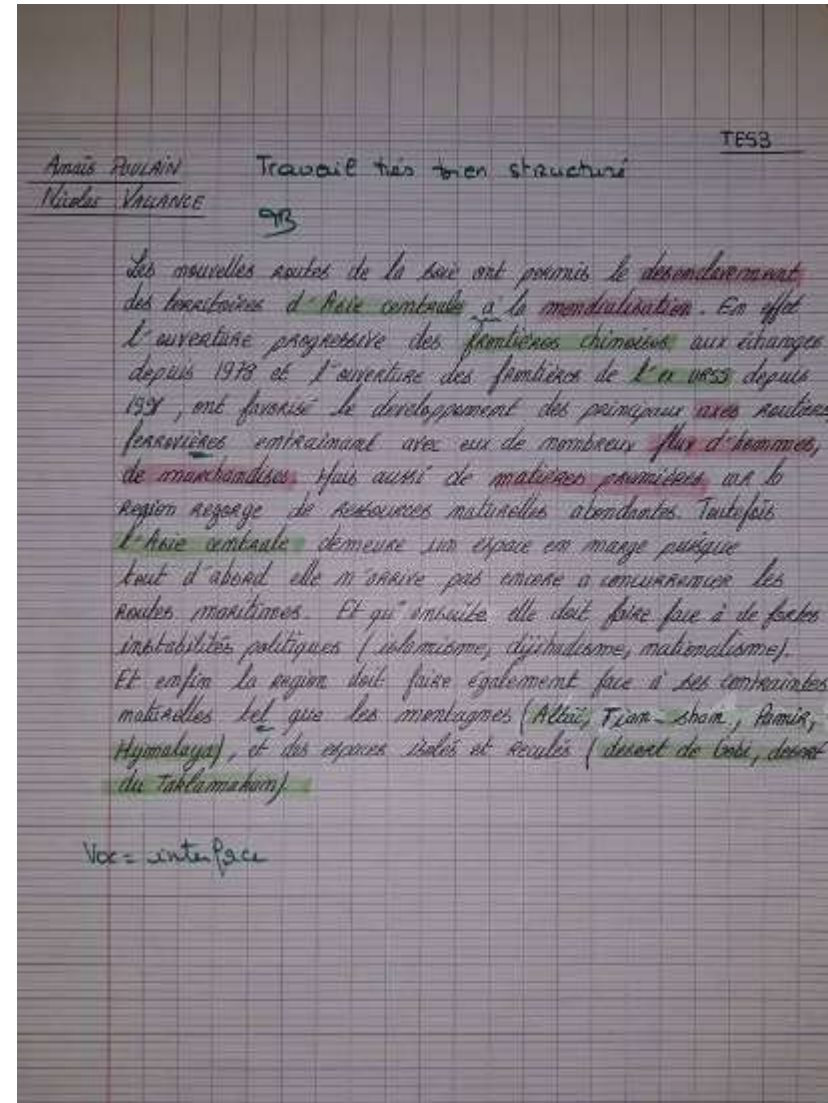 TES3
Anaïs POULAIN Travail très bien structuré
Nicolas VALLANCE
TB
Les nouvelles routes de la soie ont permis le desenclavement
des territoires d'Asie centrale a la mondialisation. En effet
l'ouverture progressive des frontières chinoises aux échanges
depuis 1978 et l'ouverture des frontières de l'ex URSS depuis
1991, ont favorisé le developpement des principaux axes routiers,
ferrovières entrainant avec eux de nombreux flux d'hommes,
de marchandises. Mais aussi de matières premières, car la
region regorge de ressources naturelles abondantes. Toutefois
l'Asie centrale demeure un espace en marge puisque
tout d'abord elle n'arrive pas encore a concurrencer les
routes maritimes. Et qu'ensuite elle doit faire face à de fortes
instabilités politiques (islamisme, djihadisme, nationalisme).
Et enfin la region doit faire également face à ses contraintes
naturelles tel que les montagnes (Altaï, Tian-shan, Pamir,
Hymalaya), et des espaces isolés et reculés (desert de Gobi, desert
du Taklamakan).
Voc = interface